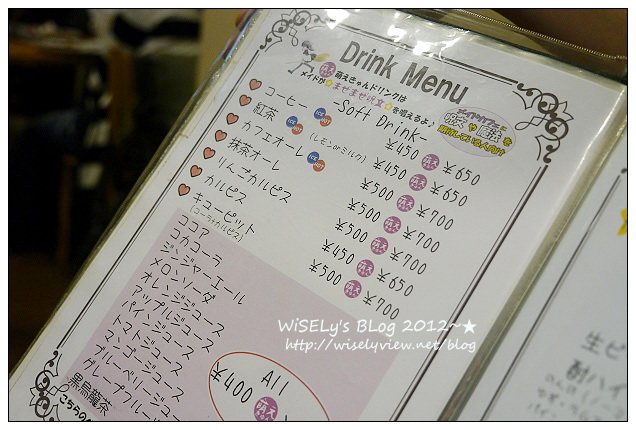 Drink Menu
萌えきゅんドリンクは
メイドが まぜまぜ呪文 を唱えるよ♪
-Soft Drink-
コーヒー ICE HOT ¥450 萌え ¥650
紅茶 ICE HOT (レモンorミルク) ¥450 萌え ¥650
カフェオーレ ICE HOT ¥500 萌え ¥700
抹茶オーレ ¥500 萌え ¥700
りんごカルピス ¥500 萌え ¥700
カルピス ¥450 萌え ¥650
キューピット ¥500 萌え ¥700
(コーラ+カルピス)
ココア
コカコーラ
ジンジャーエール
メロンソーダ
オレンジジュース
アップルジュース
パインジュース
トマトジュース
マンゴージュース
ブルーベリージュース
グレープフルーツ
黒烏龍茶
こちらの
All
¥400 萌え
生ビ
酎ハイ
WiSELy's Blog 2012~★
http://wiselyview.net/blog